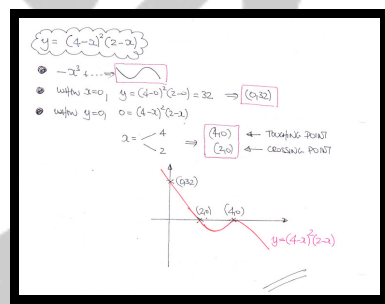 y = (4-x)²(2-x)
-x³ + ... ⇒
when x=0, y = (4-0)²(2-0) = 32 ⇒ (0,32)
when y=0, 0 = (4-x)²(2-x)
x = 4 ⇒ (4,0) ← TOUCHING POINT
2 (2,0) ← CROSSING POINT
(0,32)
(2,0) (4,0)
y=(4-x)²(2-x)